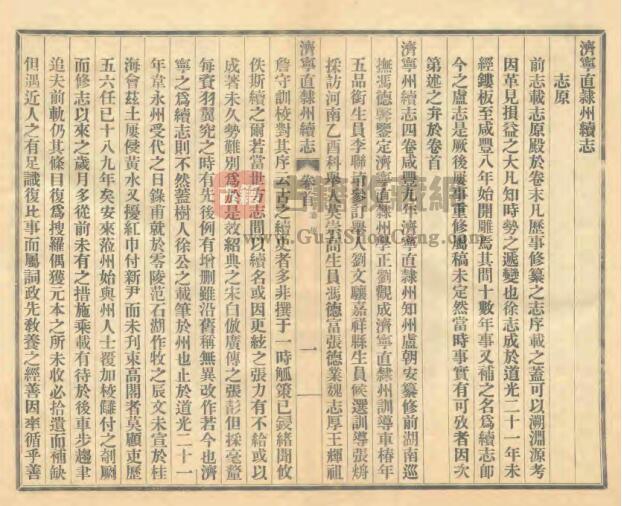 濟寧直隸州續志
志原
前志載志原殿於卷末凡歷事修纂之志序載之蓋可以溯淵源考
因革見損益之大凡知時勢之遞變也徐志成於道光二十一年未
經鏤板至咸豐八年始開雕焉其間十數年事又補之名爲續志卽
今之盧志是厥後屢事重修屬稿未定然當時事實有可攷者因次
第述之弁於卷首
濟寧州續志四卷咸豐九年濟寧直隸州知州盧朝安纂修前湖南巡
撫馮德馨鑒定濟寧直隸州學正劉觀成濟寧直隸州訓導車椿年
五品銜生員李聯
採訪河南乙酉科舉人
參訂舉人劉文驤嘉祥縣生員候選訓導張
生員馮德富張德業魏志厚王輝祖
濟寧直隸州續志
卷首
一
詹守訓校對其序云古之續史者多非撰于一時觚策已
緒閒攸
佚斯續之爾若當世方志間以續名或因更絃之張力有不給或以
成著未久勢難別爲
是效紹典之宋白倣廣傳之張彭但採毫釐
每賚羽翼究之時有先後例有增刪雖沿舊稱無異改作若今也濟
寧之爲續志則不然蓋樹人徐公之載筆於州也止於道光二十一
年韋永州受代之日錄甫就於零陵范石湖作牧之辰文未宣於桂
海會茲土屢侵黃水又擾紅巾付新尹而未刋束高閣者莫顧更歷
五六任已十八九年矣安來蒞州始與州人士覆加校讎付之剞劂
而修志以來之歲月多從前未有之措施乘載有待於後車步趨聿
追夫前軌仍其條目復爲搜羅偶獲元本之所未收必拾遺而補缺
但遇近人之有足識復比事而屬詞政先敎養之經善因率循乎善
www.GuJiShouCang.com